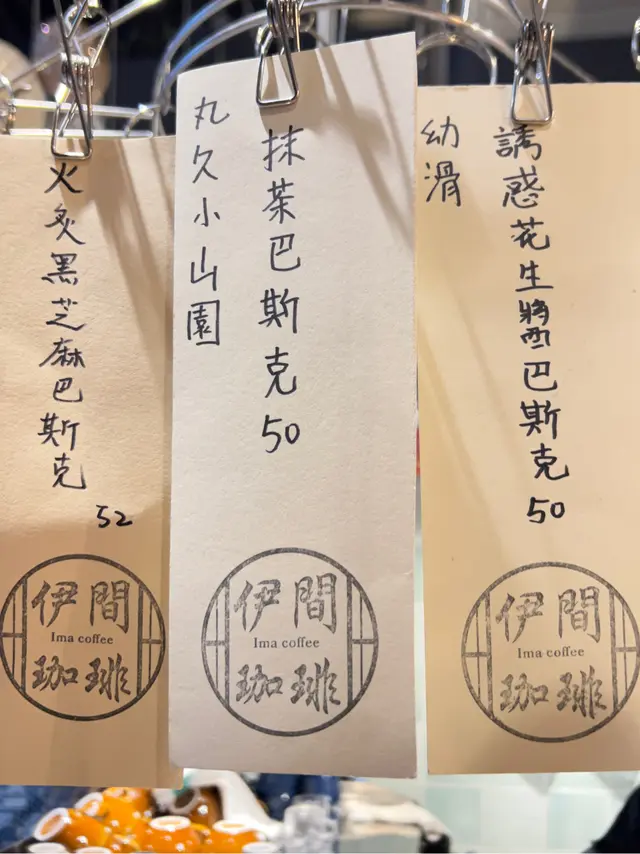 火炙黑芝麻巴斯克
52
伊間
Ima coffee
珈琲
丸久小山園
抹茶巴斯克50
伊間
Ima coffee
珈琲
幼滑
誘惑花生醬巴斯克50
伊間
Ima coffee
珈琲